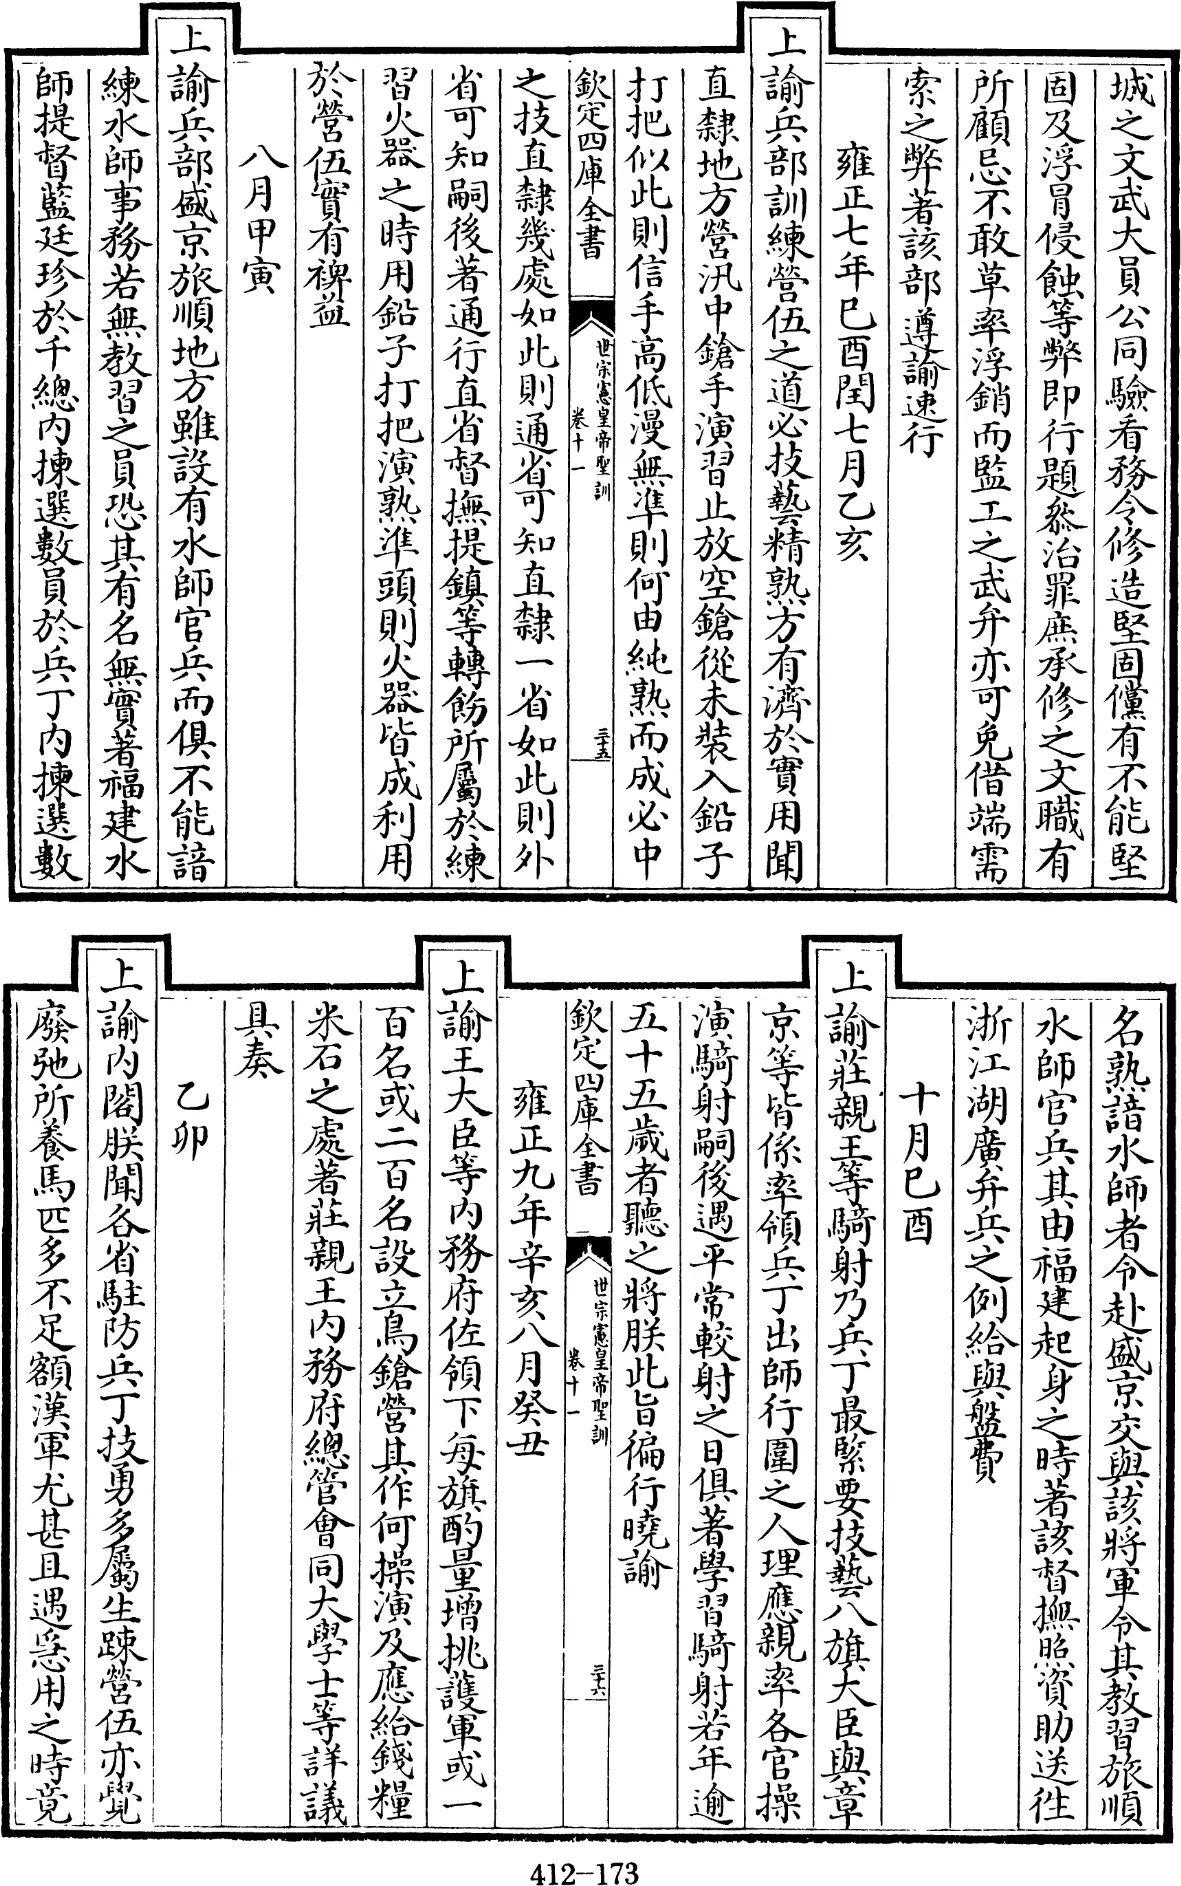 城之文武大員公同驗看務令修造堅固儻有不能堅
固及浮冒侵蝕等弊即行題叅治罪庶承修之文職有
所顧忌不敢草率浮銷而監工之武弁亦可免借端需
索之弊著該部遵諭速行
雍正七年巳酉閏七月乙亥
上諭兵部訓練營伍之道必技藝精熟方有濟於實用聞
直隸地方營汛中鎗手演習止放空鎗從未裝入鉛子
打把似此則信手高低漫無準則何由純熟而成必中
欽定四庫全書
世宗憲皇帝聖訓
卷十一
三十五
之技直隸幾處如此則通省可知直隸一省如此則外
省可知嗣後著通行直省督撫提鎮等轉飭所屬於練
習火器之時用鉛子打把演熟準頭則火器皆成利用
於營伍實有裨益
八月甲寅
上諭兵部盛京旅順地方雖設有水師官兵而俱不能諳
練水師事務若無教習之員恐其有名無實著福建水
師提督藍廷珍於千總內揀選數員於兵丁內揀選數
名熟諳水師者令赴盛京交與該將軍令其教習旅順
水師官兵其由福建起身之時著該督撫照資助送徃
浙江湖廣弁兵之例給與盤費
十月巳酉
上諭莊親王等騎射乃兵丁最緊要技藝八旗大臣與章
京等皆係率領兵丁出師行圍之人理應親率各官操
演騎射嗣後遇平常較射之日俱著學習騎射若年逾
五十五歲者聽之將朕此旨徧行曉諭
欽定四庫全書
世宗憲皇帝聖訓
卷十一
三十六
雍正九年辛亥八月癸丑
上諭王大臣等內務府佐領下每旗酌量增挑護軍或一
百名或二百名設立鳥鎗營其作何操演及應給錢糧
米石之處著莊親王內務府總管會同大學士等詳議
具奏
乙卯
上諭內閣朕聞各省駐防兵丁技勇多屬生踈營伍亦覺
廢弛所養馬匹多不足額漢軍尤甚且遇急用之時竟
412-173